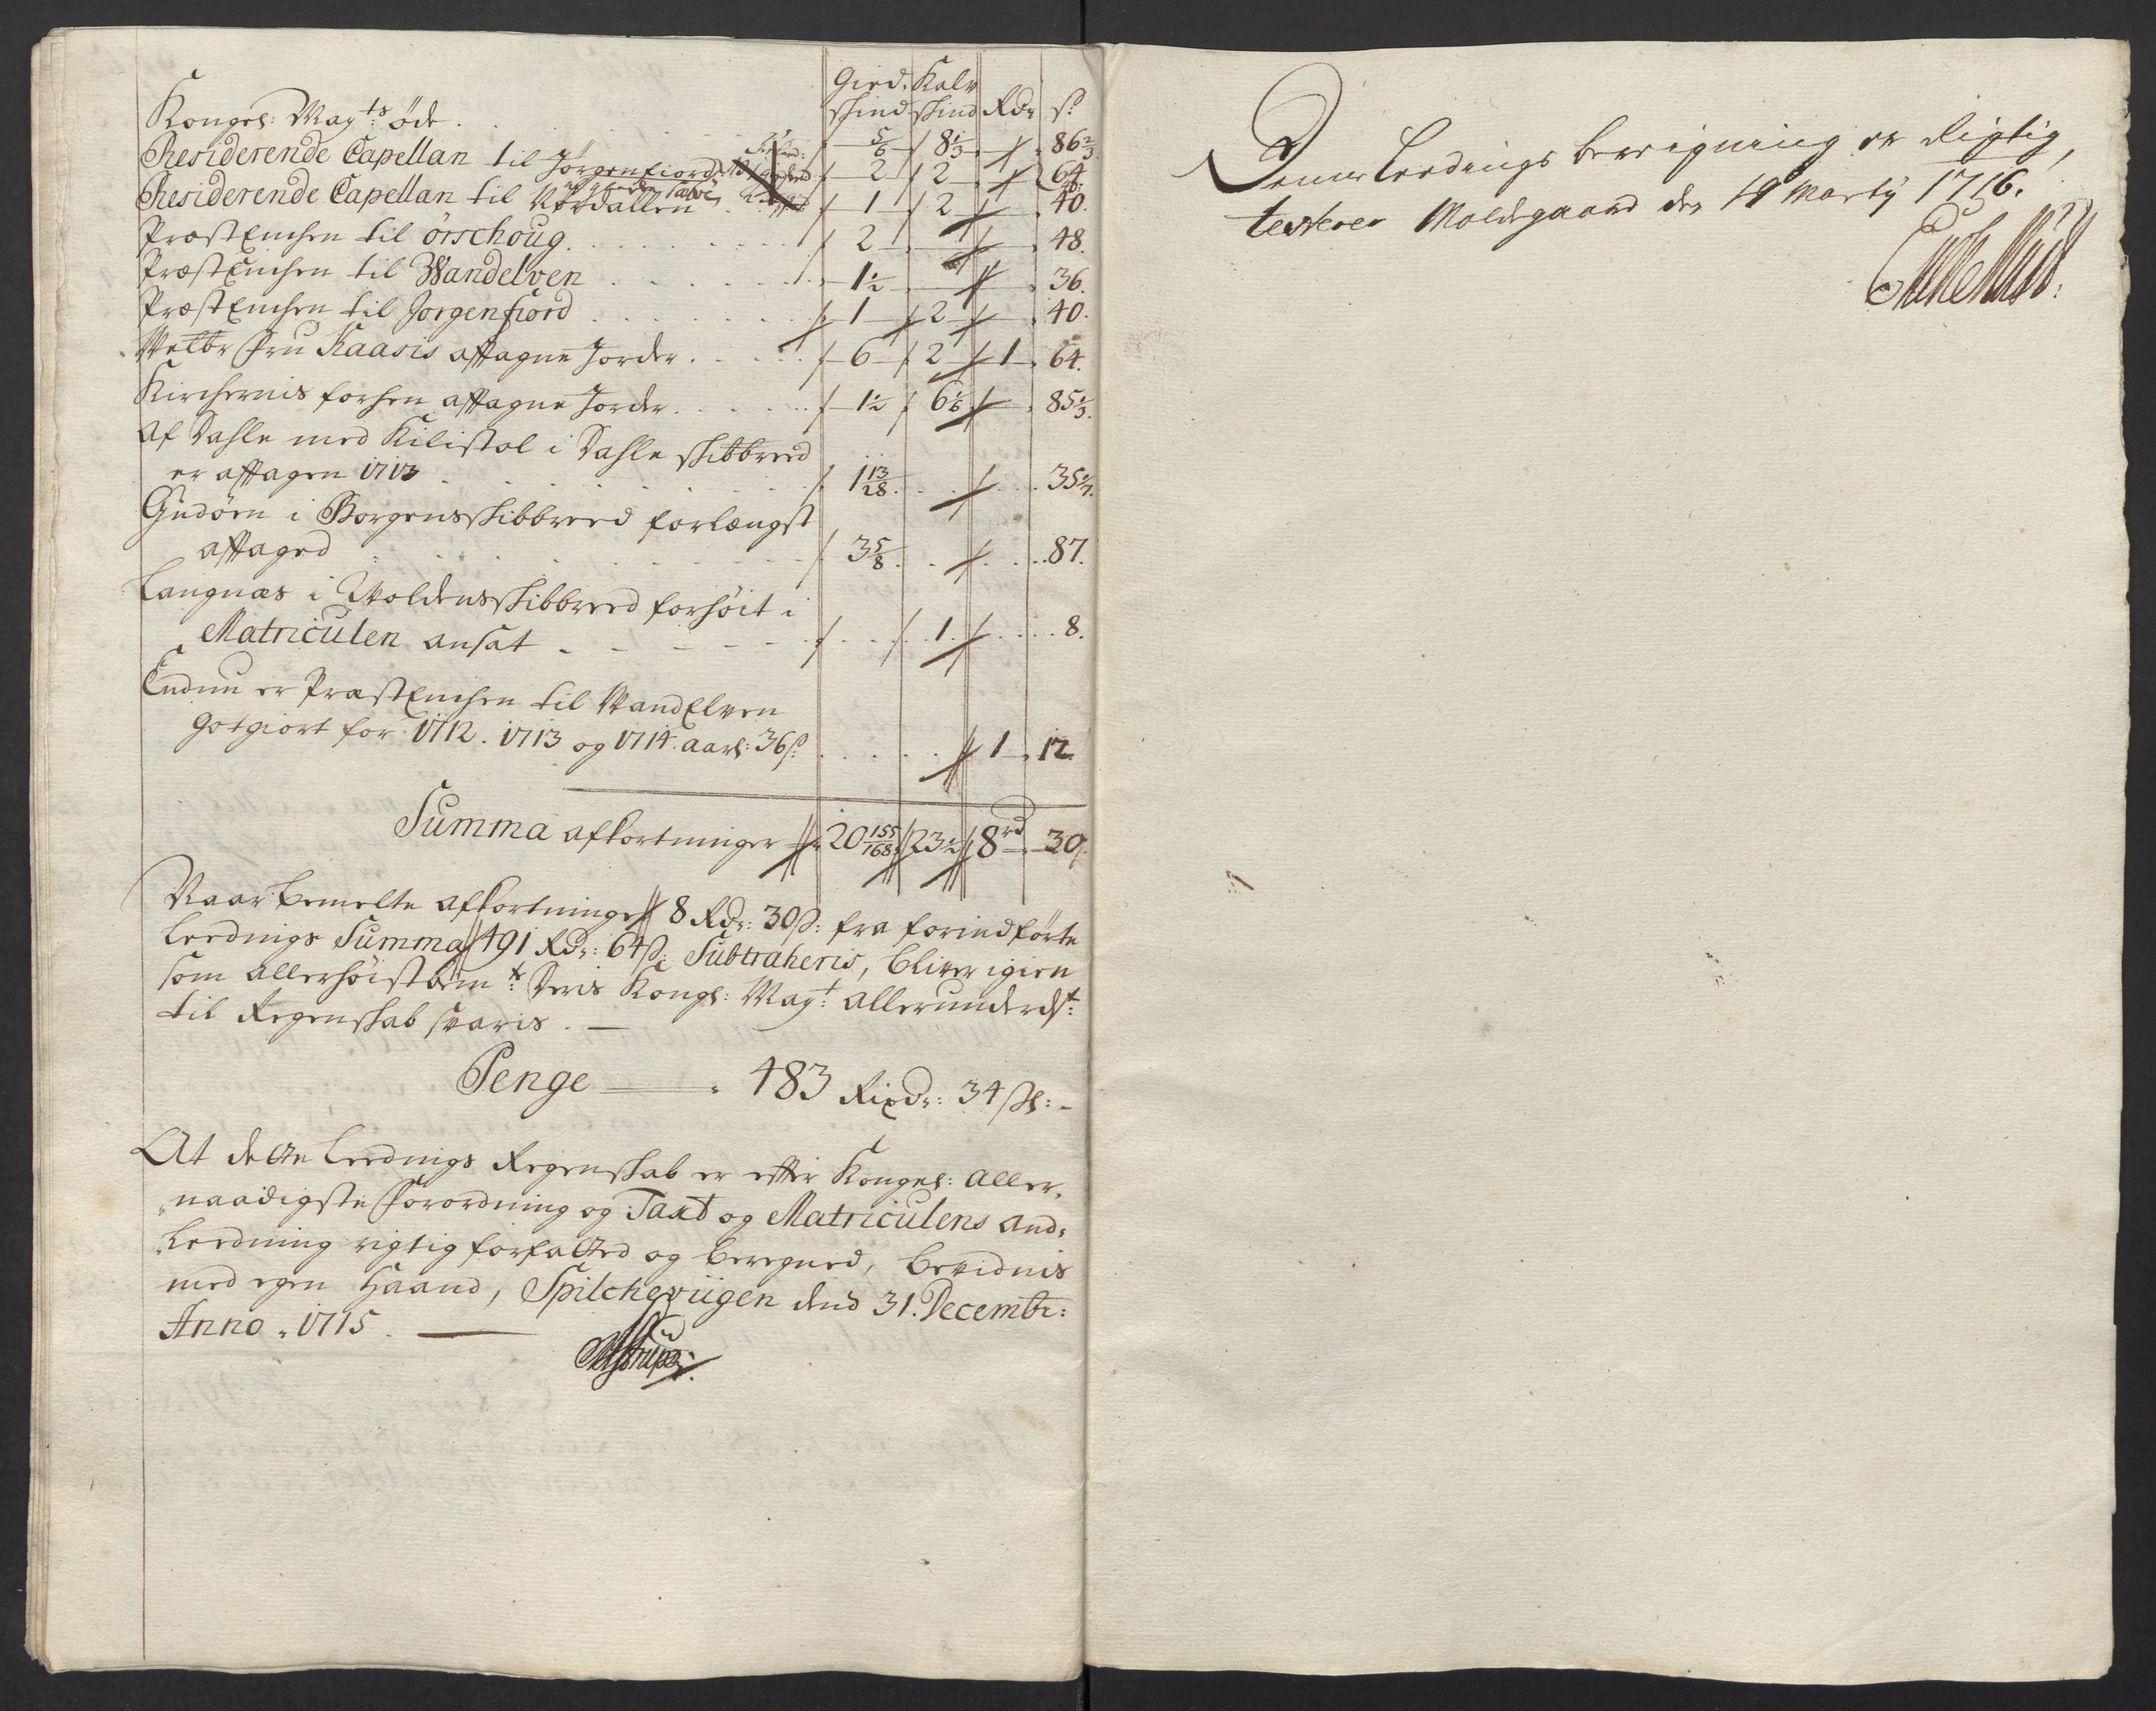 Gied. Kalv
skind skind Rdr ß
Kongel: Mayts öde . 5/6 8 1/3 86 2/3
Residerende Capellan til Jörgenfiord 2 2 64
Residerende Capellan til Nordallen 1 2 40.
PræstEnchen til örschoug 2 48.
PræstEnchen til Wandelven 1 1/2 36.
PræstEnchen til Jorgenfiord 1 2 40.
Velbr Fru Kaasis afftagne Jorder 6 2 1 64.
Kirchernis forhen afftagne Jorder 1 1/2 6 1/6 85 1/3.
Af Dahle med Kilistol i Dahle skibbreed
er afftagen 1713 1 13/28 35 1/7.
Gudöen i Borgensskibbreed forlængst
afftaged 3 5/8 87.
Langnæs i Woldensskibbreed forhöit i
Matriculen ansat 1 8.
Endnu er PræstEnchen til VandElven
gotgiort for 1712. 1713 og 1714. aarl: 36ß 1 12
Summa afkortninger 20 155/168 23 1/2 8rd 30
Naar bemelte afkortninger 8 Rdr: 30ß: fra forindförte
Leednigs Summa 491 Rdr: 64ß: Subtraheris, bliver igien
som allerhöistbemt: Deris Kongl: Mayt: allerunderdst:
til Regenskab svaris. —
Penge — 483 Rixdr: 34 ßl: -
At dette Leednigs Regenskab er effter Kongel: Aller-
naadigste Forordning og Taxt og Matriculens And-
Leedning rigtig forfatted og beregned, bevidnis
med egen Haand, Spilchevügen dend 31. Decembr:
Anno 1715. —
Denne Leednigs beregning er Rigtig,
testerer Moldegaard den 19 Marty 1716.